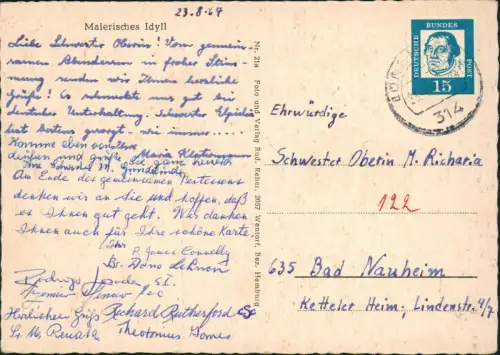 23.8.64
Malerisches Idyll
Liebe Schwester Oberin! Vom gemein-
samen Abendessen in froher Stim-
mung senden wir Ihnen herzliche
Grüße! Es schmeckte uns gut bei
deutscher Unterhaltung. Schwester Elpidia
hat bestens gesorgt - wie immer....
Komme eben
denken und grüße Sie ganz herzlich
Ihre Schwester M.
Am Ende des gemeinsamen Festessens
denken wir an Sie und hoffen, daß
es Ihnen gut geht. Wir danken
Ihnen auch für Ihre schöne Karte.
Ihr P. James Connolly
Br. Dano
Rodrigo S.I.
Herzlichen Gruß Richard Rutherford
Sr. M. Renata Theotonius Gomes
Nr. 21a Foto und Verlag Rud. Reher, 2057 Wentorf, Bez. Hamburg
DEUTSCHE BUNDES POST
15
314
Ehrwürdige
Schwester Oberin M. Richaria
122
635 Bad Nauheim
Ketteler Heim, Lindenstr. 4/7